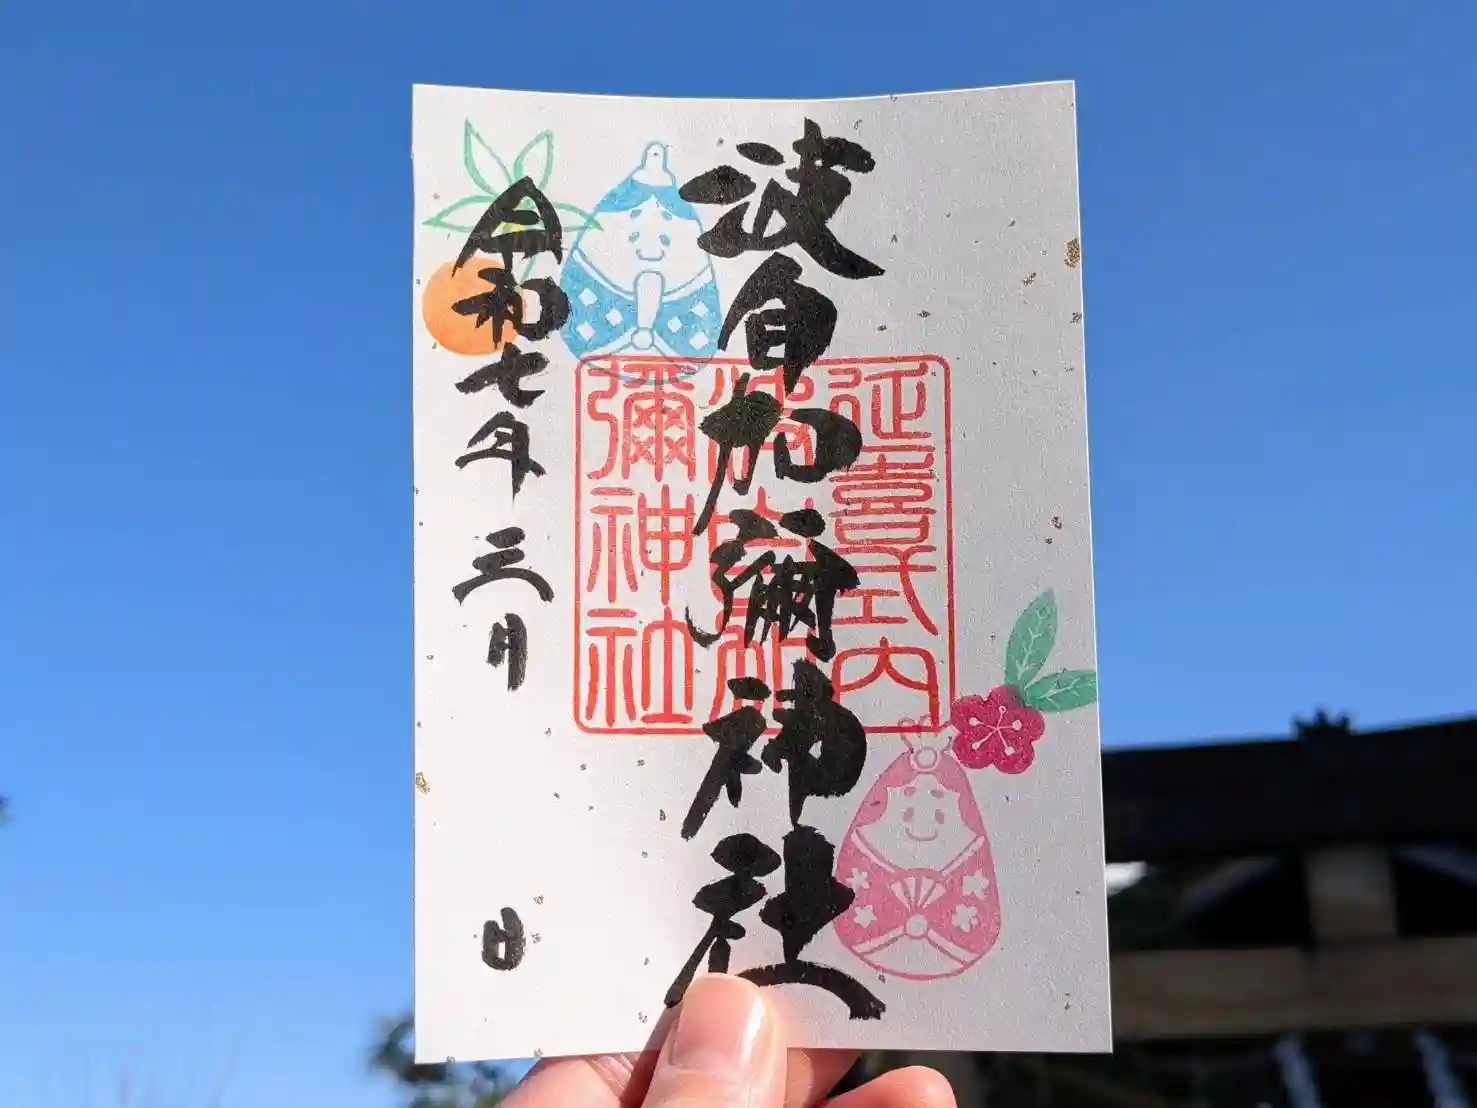 波自加彌神社
延喜式内
波自加
彌神社
令和七年三月 日